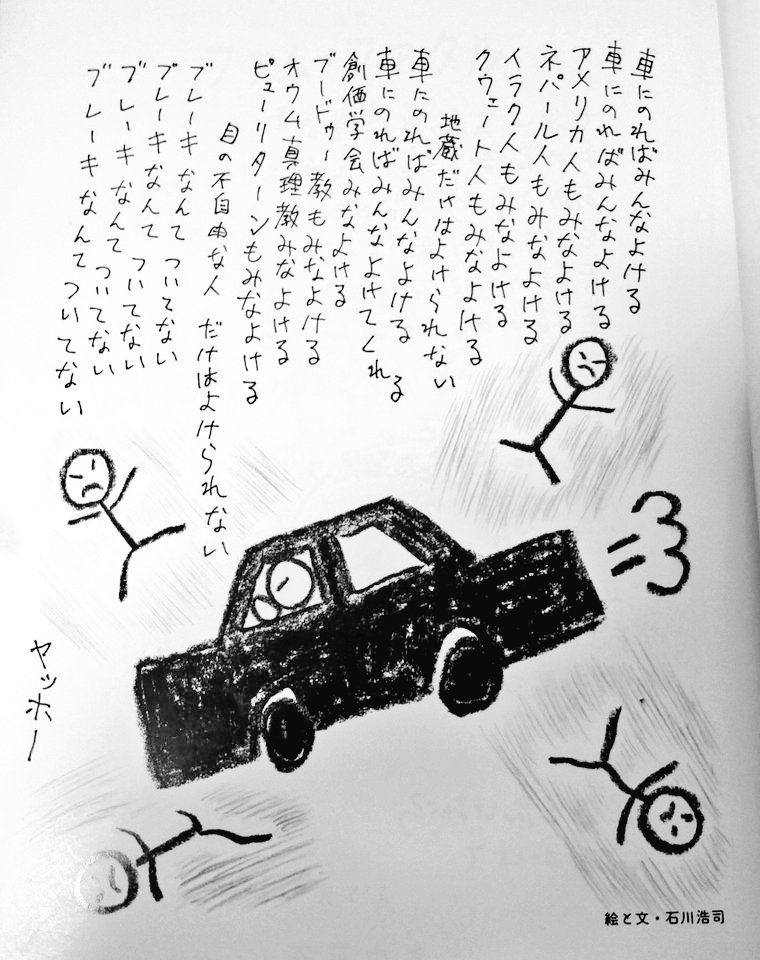 車にのればみんなよける
車にのればみんなよける
アメリカ人もみなよける
ネパール人もみなよける
イラク人もみなよける
クウェート人もみなよける
地蔵だけはよけられない
車にのればみんなよける
車にのればみんなよけてくれる
創価学会みなよける
ブードゥー教もみなよける
オウム真理教みなよける
ピューリターンもみなよける
目の不自由な人 だけはよけられない
ブレーキなんて ついてない
ブレーキなんて ついてない
ブレーキなんて ついてない
ブレーキなんてついてない
ヤッホー
絵と文・石川浩司